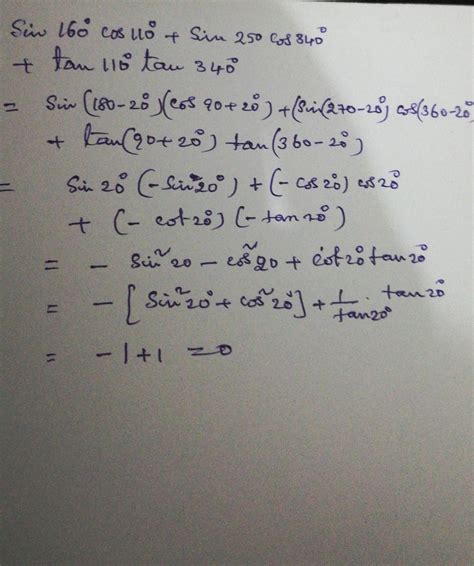 Sin 160° cos 110° + Sin 250 cos 340°
+ tan 110° tan 340°
= Sin (180-20°)(cos 90+20°) + (Sin(270-20°) cos(360-20°
+ tan(90+20°) tan(360-20°)
= Sin 20° (-Sin 20°) + (-cos 20°) cos 20°
+ (-cot 20°) (-tan 20°)
= - Sin²20 - cos²20 + cot 20° tan 20°
= - [Sin²20° + cos²20°] + 1/tan 20° · tan 20°
= -1+1 = 0